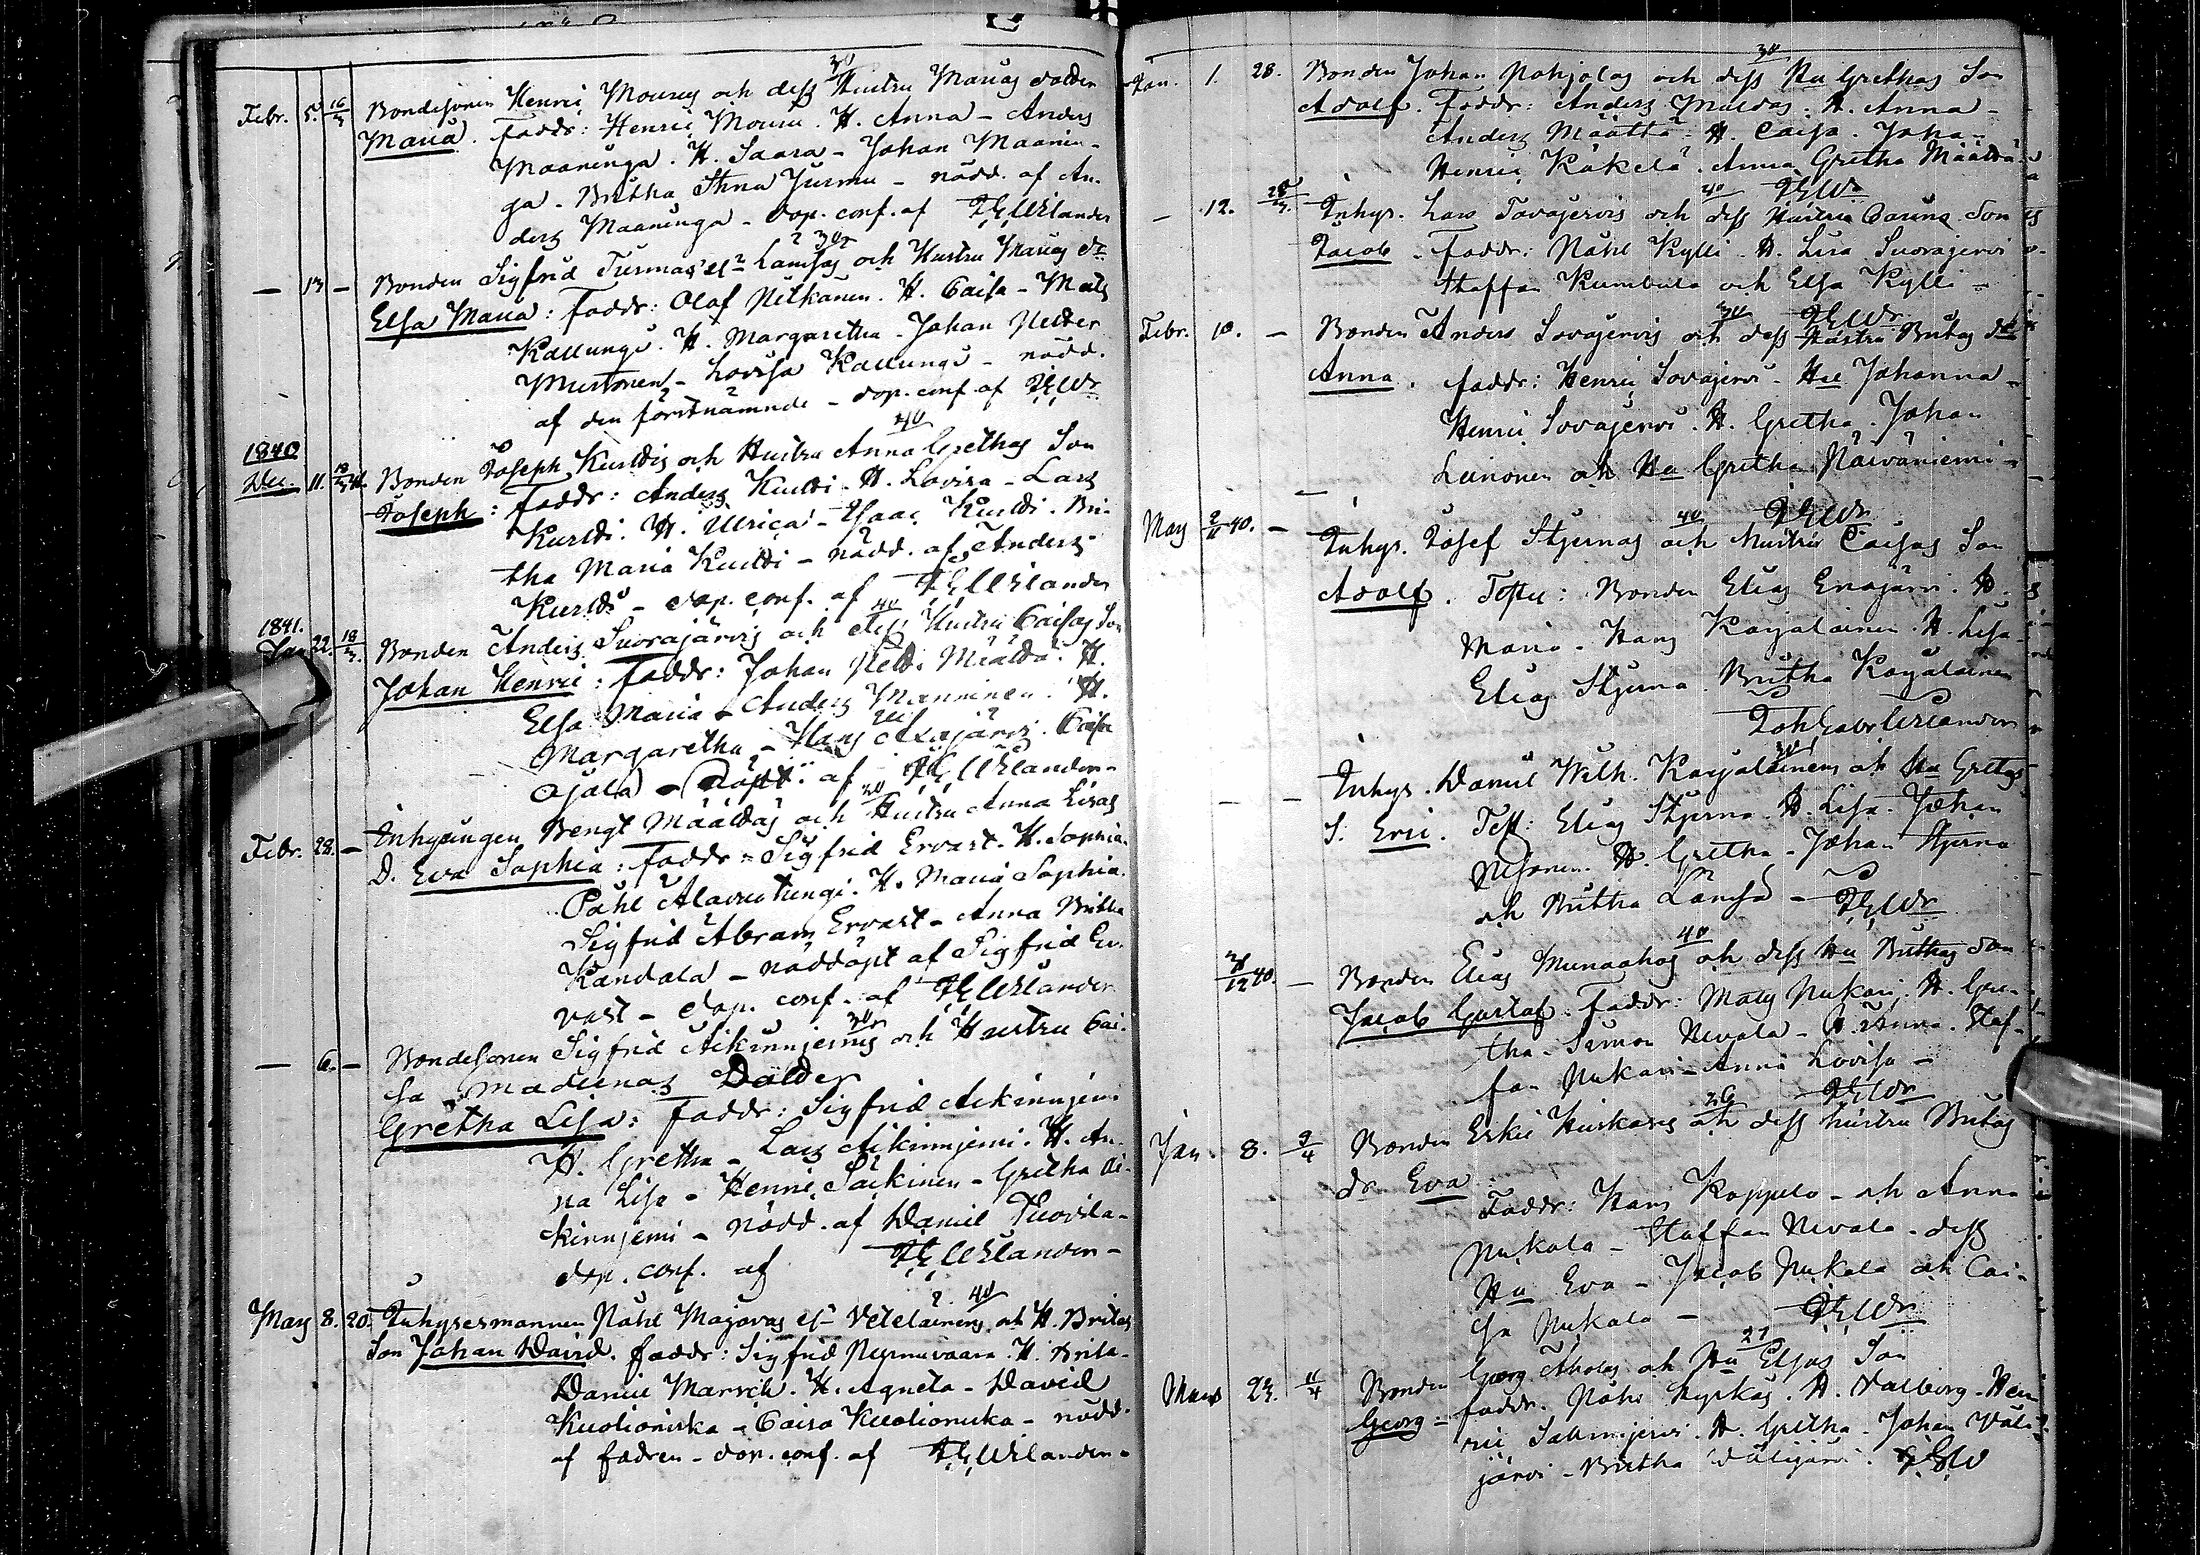 Febr. 5. 16/3 Bondesonen Henric Mourus och dess Hustru Marias dotter
Maria. Faddr: Henric Mouru. H. Anna - Anders
Maaninga. H. Saara - Johan Maanin-
ga. Britha Stina Jurmu - nödd. af An-
ders Maaninga - dop. conf. af Wælander
— 13 — Bonden Sigfrid och Hustru Marias dr
Elsa Maria: Faddr: Olof Pitkänen. H. Caisa - Mats
Kallungi. H. Margaretha - Johan Petter
Mustonen - Lovisa Kallungi - nödd.
af den förstnämnde - dop. conf. af
1840
Dec. 11. Bonden Joseph Kurttis och Hustru Anna Grethas Son
Joseph: Faddr: Anders Kurtti. H. Lovisa - Lars
Kurtti. H. Ulrica - Isaac Kurtti. Bri-
tha Maria Kurtti - nödd. af Anders
Kurtti - dop. conf. af
1841.
Jan 22. 18/3. Bonden Anders Suorajärvis och dess Hustru Caisas Son
Johan Henric: Faddr: Johan Petter Määttä. H.
Elsa Maria - Anders Manninen. H.
Margaretha - Hans Caisa
Ojala - Döpt. af
Febr. 28. — Inhysingen Bengt Määttäs och Hustru Anna Lisas
D. Eva Sophia: Faddr: Sigfrid Ervast. H. Sophia.
Påhl Alavuotunki. H. Maria Sophia.
Sigfrid Abram Ervast - Anna Britha
Kandala - nöddöpt af Sigfrid Er-
vast - dop. conf. af
— 6. — Bondesonen Sigfrid Aikinnjemis och Hustru Cai-
sa Madlenas Dotter
Gretha Lisa: Faddr: Sigfrid Aikinnjemi
H. Gretha - Lars Aikinnjemi. H. An-
na Lisa - Henric Säikinen - Gretha Ai-
kinnjemi - nödd. af Daniel Tuovila-
dop. conf. af
Mars 8. 20. Inhysesmannen Påhl Majavas och H. Britas
Son Johan David. Faddr: Sigfrid Nyrmivaara. H. Brita-
Daniel Marsch. H. Agneta - David
Kuolioniska - Caisa Kuolioniska - nödd.
af fadren - dop. conf. af
Jan. 1. 28. Bonden Johan Pohjolas och dess Hu Grethas Son
Adolf. Faddr: Anders H. Anna -
Anders Määttä. H. Caisa. Johan
Henric Käkelä. Anna Gretha Määttä
— 12. Inhys. Lars Sovajervis och dess Hustru Carins Son
Jacob. Faddr: Påhl Kylli. H. Lisa Suorajervi
Staffan och Elsa Kylli -
Febr. 10. — Bonden Anders Sovajervis och dess Hustru Britas dr
Anna. Faddr: Henric Sovajervi. Hu Johanna -
Henric Sovajervi. H. Gretha. Johan
Leinonen och Hu Gretha Päiväniemi -
May 2/11 40. — Inhys. Josef Stjernas och Hustru Caisas Son
Adolf. Test: Bonden Elias H.
Maria. Hans Karjalainen. H. Lisa
Elias Stjerna. Britha Karjalainen
— — Inhys. Daniel Wilh. Karjalainens och Hu Gretas
S. Eric. Test: Elias Stjerna. H. Lisa. Johan
H. Gretha - Johan Stjerna
och Britha Lämsä -
/12 40. — Bonden Elias Mursahos och dess Hu Brithas Son
Jacob Gustaf. Faddr: Mats Pukari. H. Gre-
tha. Simon Nevala - H. Anna. Staf-
fan Pukari - Anna Lovisa -
Jan. 8. 9/4 Bonden Eskil Hurskas och dess hustru Britas
dr Eva:
Faddr: Hans Koppelo - och Anna
Pukala - Staffan Nevala - dess
Hu Eva - Jacob Pukala och Cai-
sa Pukala -
Mars 23. 11/4 Bonden Georg och Hu Elsas Son
Georg - Faddr. H. Valborg - Hen-
ric H. Gretha. Johan Väli-
järvi - Britha Välijärvi.